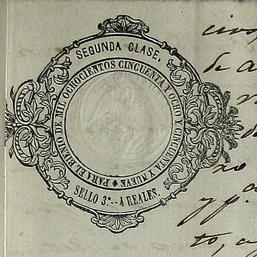 SEGUNDA CLASE.
PARA EL BIENIO DE MIL OCHOCIENTOS CINCUENTA Y OCHO Y CINCUENTA Y NUEVE
SELLO 3º.--4 REALES
de a
no
to, a